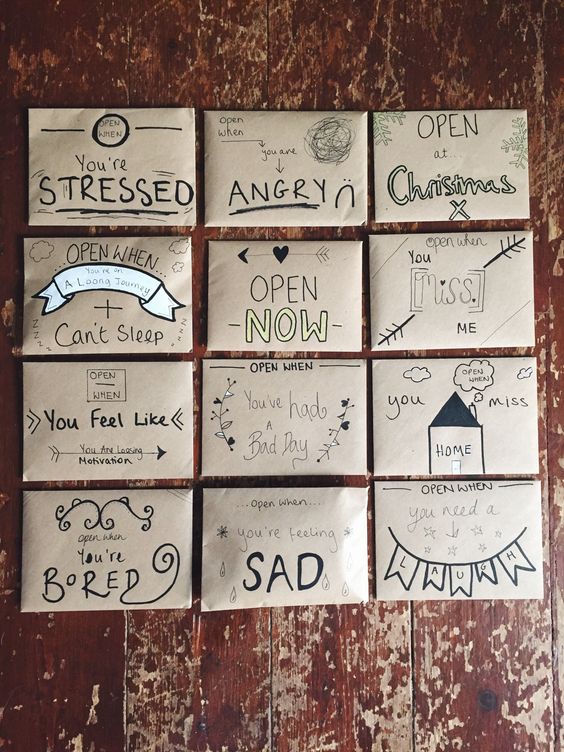 OPEN
WHEN
You're
STRESSED
open
when
you are
ANGRY
OPEN
at...
Christmas
X
OPEN WHEN...
You're on
A Loong Journey
+
Can't Sleep
OPEN
NOW
open when
You
Miss
ME
OPEN
WHEN
You Feel Like
You Are Loosing
Motivation
OPEN WHEN
You've had
A
Bad Day
OPEN
WHEN
you miss
HOME
open when
You're
BORED
...open when...
you're feeling
SAD
OPEN WHEN
you need a
LAUGH